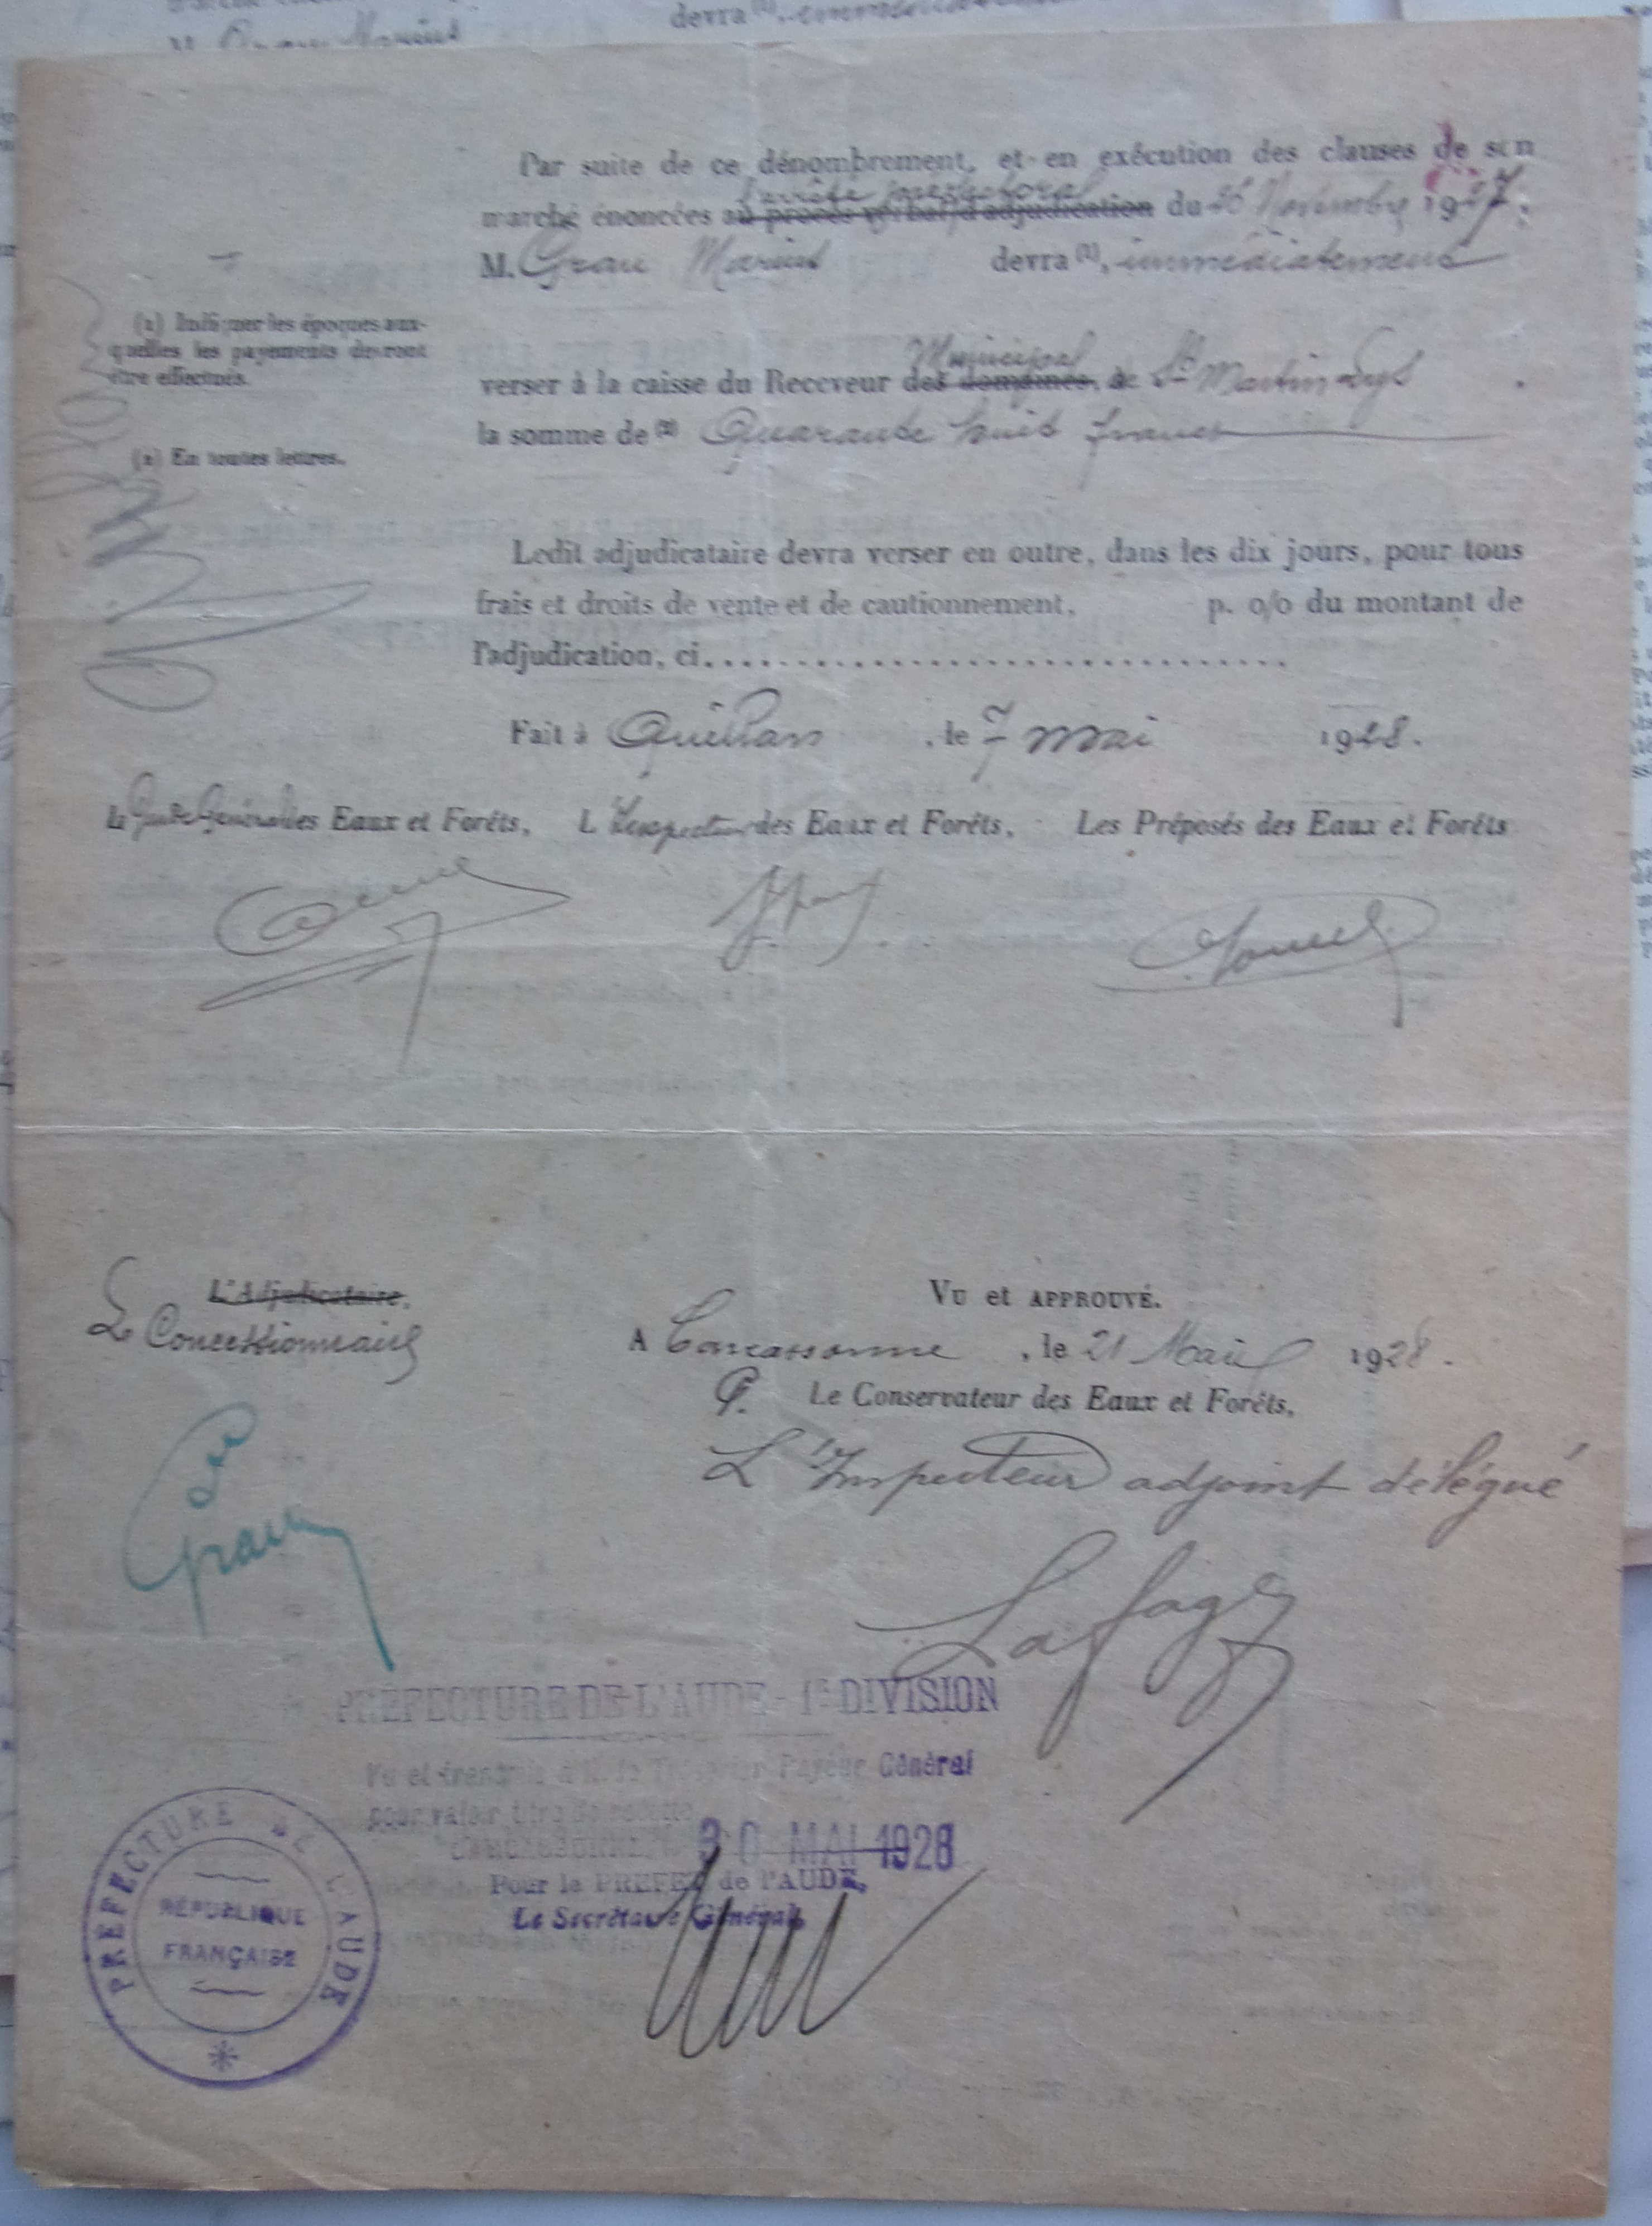 devra (1), immédiatement
M. Grau Marius
Par suite de ce dénombrement, et en exécution des clauses de son
l'arrêté préfectoral
marché énoncées au procès verbal d'adjudication du 26 Novembre 1927,
M. Grau Marius devra (1), immédiatement
(1) Indiquer les époques aux-
quelles les payements devront
être effectués.
Municipal
verser à la caisse du Receveur des domaines, de St Martin Lys
la somme de (2) Quarante huit francs
(2) En toutes lettres.
Ledit adjudicataire devra verser en outre, dans les dix jours, pour tous
frais et droits de vente et de cautionnement, p. o/o du montant de
l'adjudication, ci
Fait à Quillan, le 7 mai 1928.
Le Garde Général des Eaux et Forêts, L'Inspecteur des Eaux et Forêts, Les Préposés des Eaux et Forêts
L'Adjudicataire,
Le Concessionnaire
Vu et APPROUVÉ.
A Carcassonne, le 21 Mai 1928.
P. Le Conservateur des Eaux et Forêts,
L'Inspecteur adjoint délégué
Grau
Lafage
PRÉFECTURE DE L'AUDE - 1e DIVISION
Vu et transmis à M. le Trésorier Payeur Général
pour valoir titre de recette
CARCASSONNE, le 30 MAI 1928
Pour le PRÉFET de l'AUDE,
Le Secrétaire Général,
PREFECTURE DE L'AUDE
RÉPUBLIQUE
FRANÇAISE